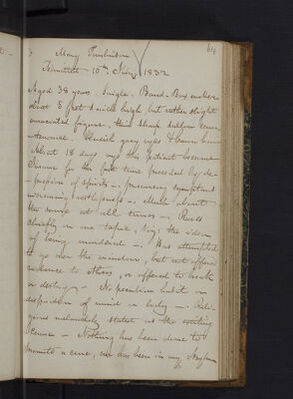 64
Mary
Admitted 10th May 1832
Aged 38 years. Single. Band-Box maker
about 5 feet & inch high but rather slight
emaciated figure, thin sharp sallow coun-
tenance. Bluish gray eyes & brown hair
About 18 days ago this patient became
Insane for the first time preceded by de-
pression of spirits — premonory symptoms
increasing restlessness — Walks about
the house at all times — Raves
chiefly on one topic, viz: the idea
of being murdered — Has attempted
to go over the window, but not offered
violence to others, or offered to break
or destroy — No peculiar habit or
disposition of mind or body — Reli-
gious melancholy stated as the exciting
cause — Nothing has been done to
promote a cure, nor has been in any Asylum